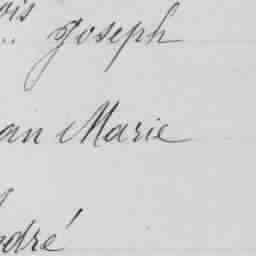 ois
.. Joseph
an Marie
ndré